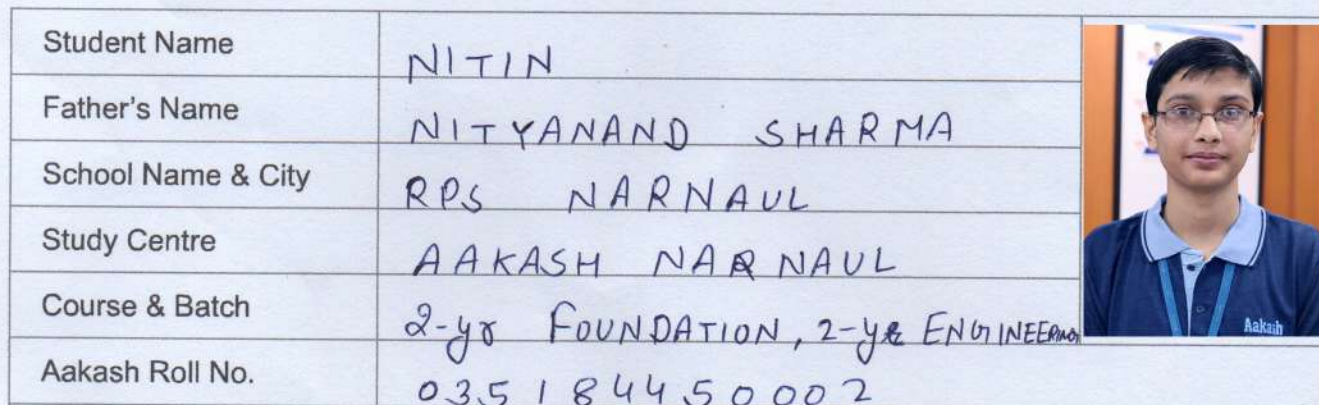 Student Name NITIN
Father's Name NITYANAND SHARMA
School Name & City RPS NARNAUL
Study Centre AAKASH NARNAUL
Course & Batch 2-yr FOUNDATION, 2-yr ENGINEERING
Aakash Roll No. 035184450002
Aakash